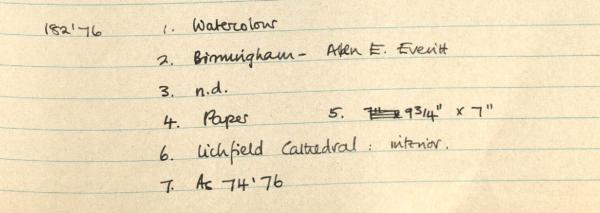 182'76 1. Watercolour
2. Birmingham - Allen E. Everitt
3. n.d.
4. Paper 5. 9 3/4" x 7"
6. Lichfield Cathedral : interior.
7. As 74'76